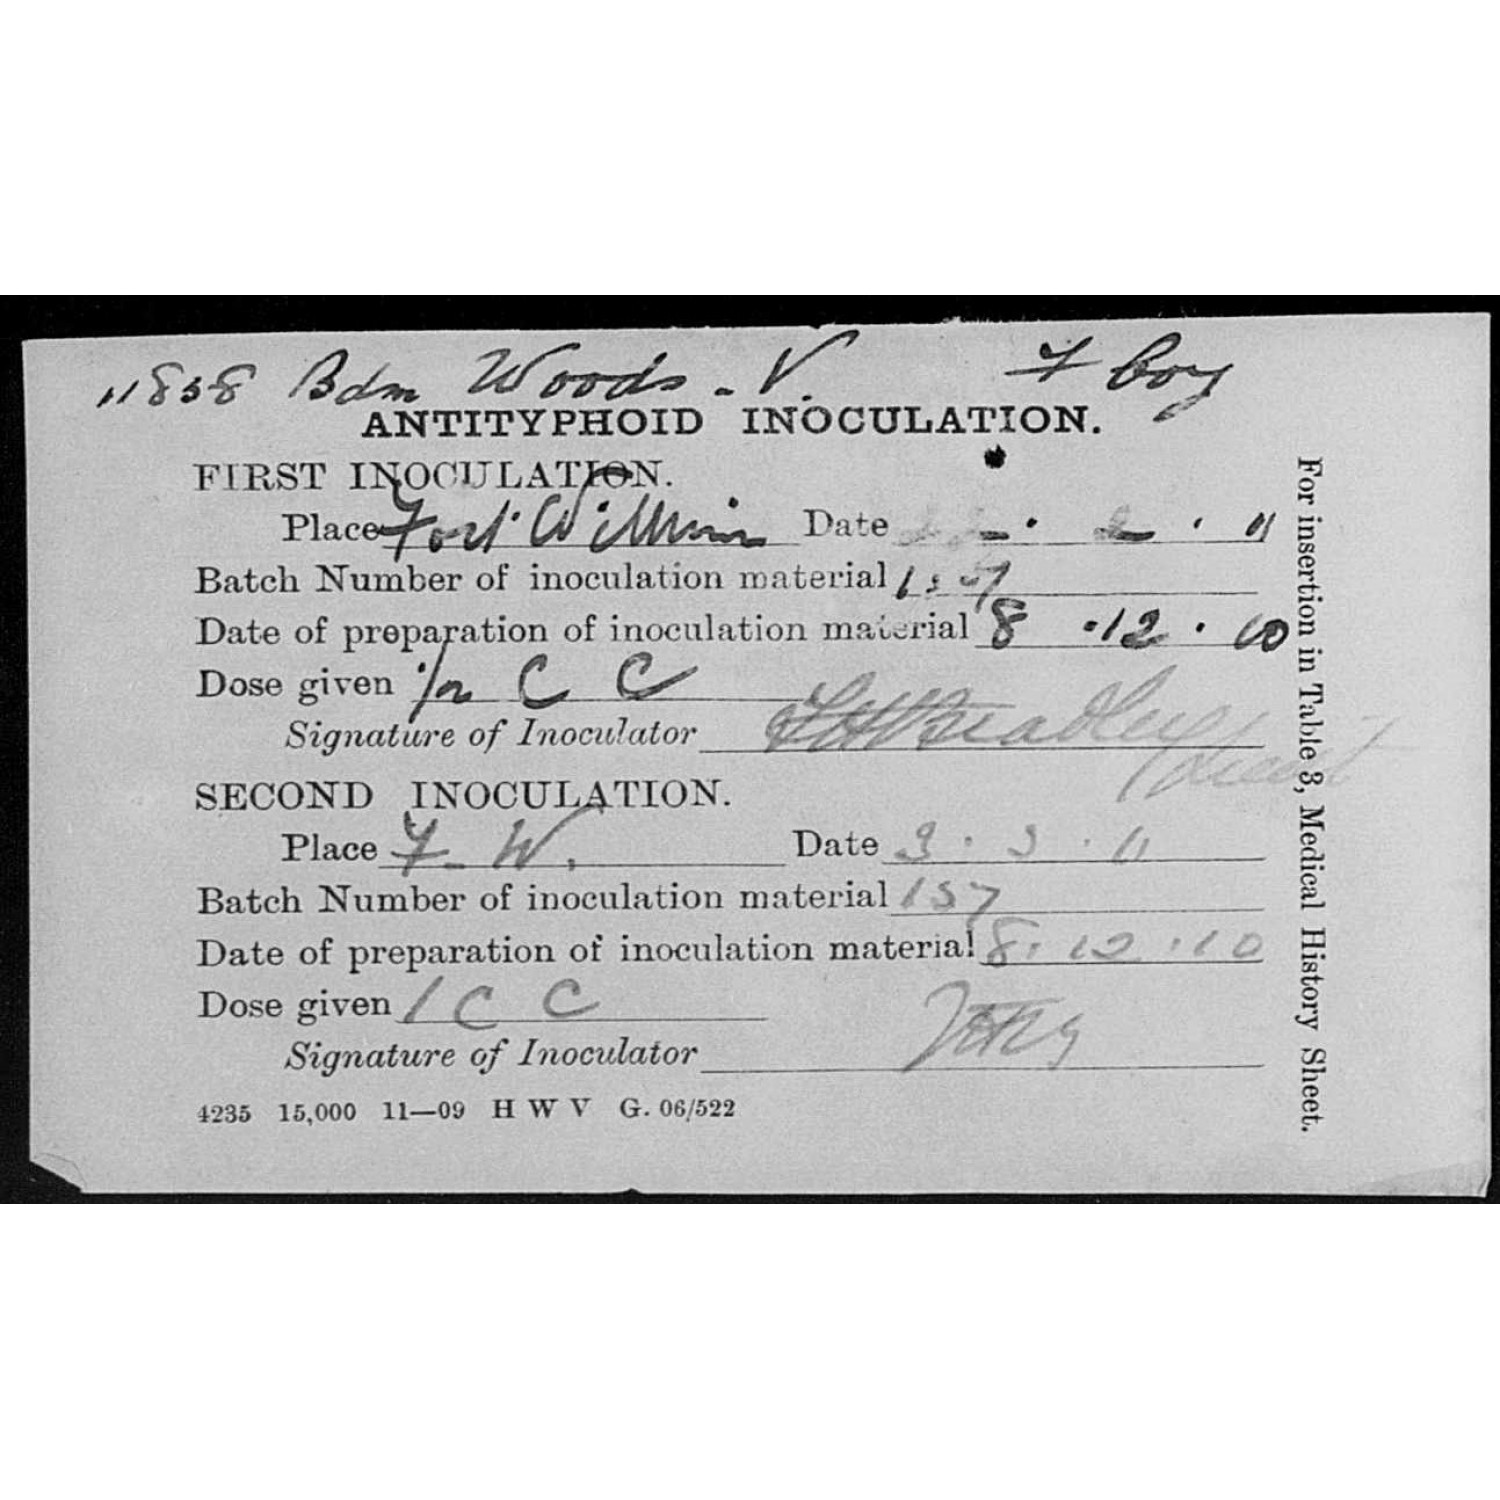 11838 Bdm Woods - V. F Coy
ANTITYPHOID INOCULATION.
FIRST INOCULATION.
Place Fort William Date 22 . 2 . 11
Batch Number of inoculation material 157
Date of preparation of inoculation material 8 . 12 . 10
Dose given 1/2 C C
Signature of Inoculator FH Bradley
Lieut
SECOND INOCULATION.
Place F. W. Date 3 . 3 . 11
Batch Number of inoculation material 157
Date of preparation of inoculation material 8 . 12 . 10
Dose given 1 C C
Signature of Inoculator
4235 15,000 11—09 H W V G. 06/522
For insertion in Table 3, Medical History Sheet.